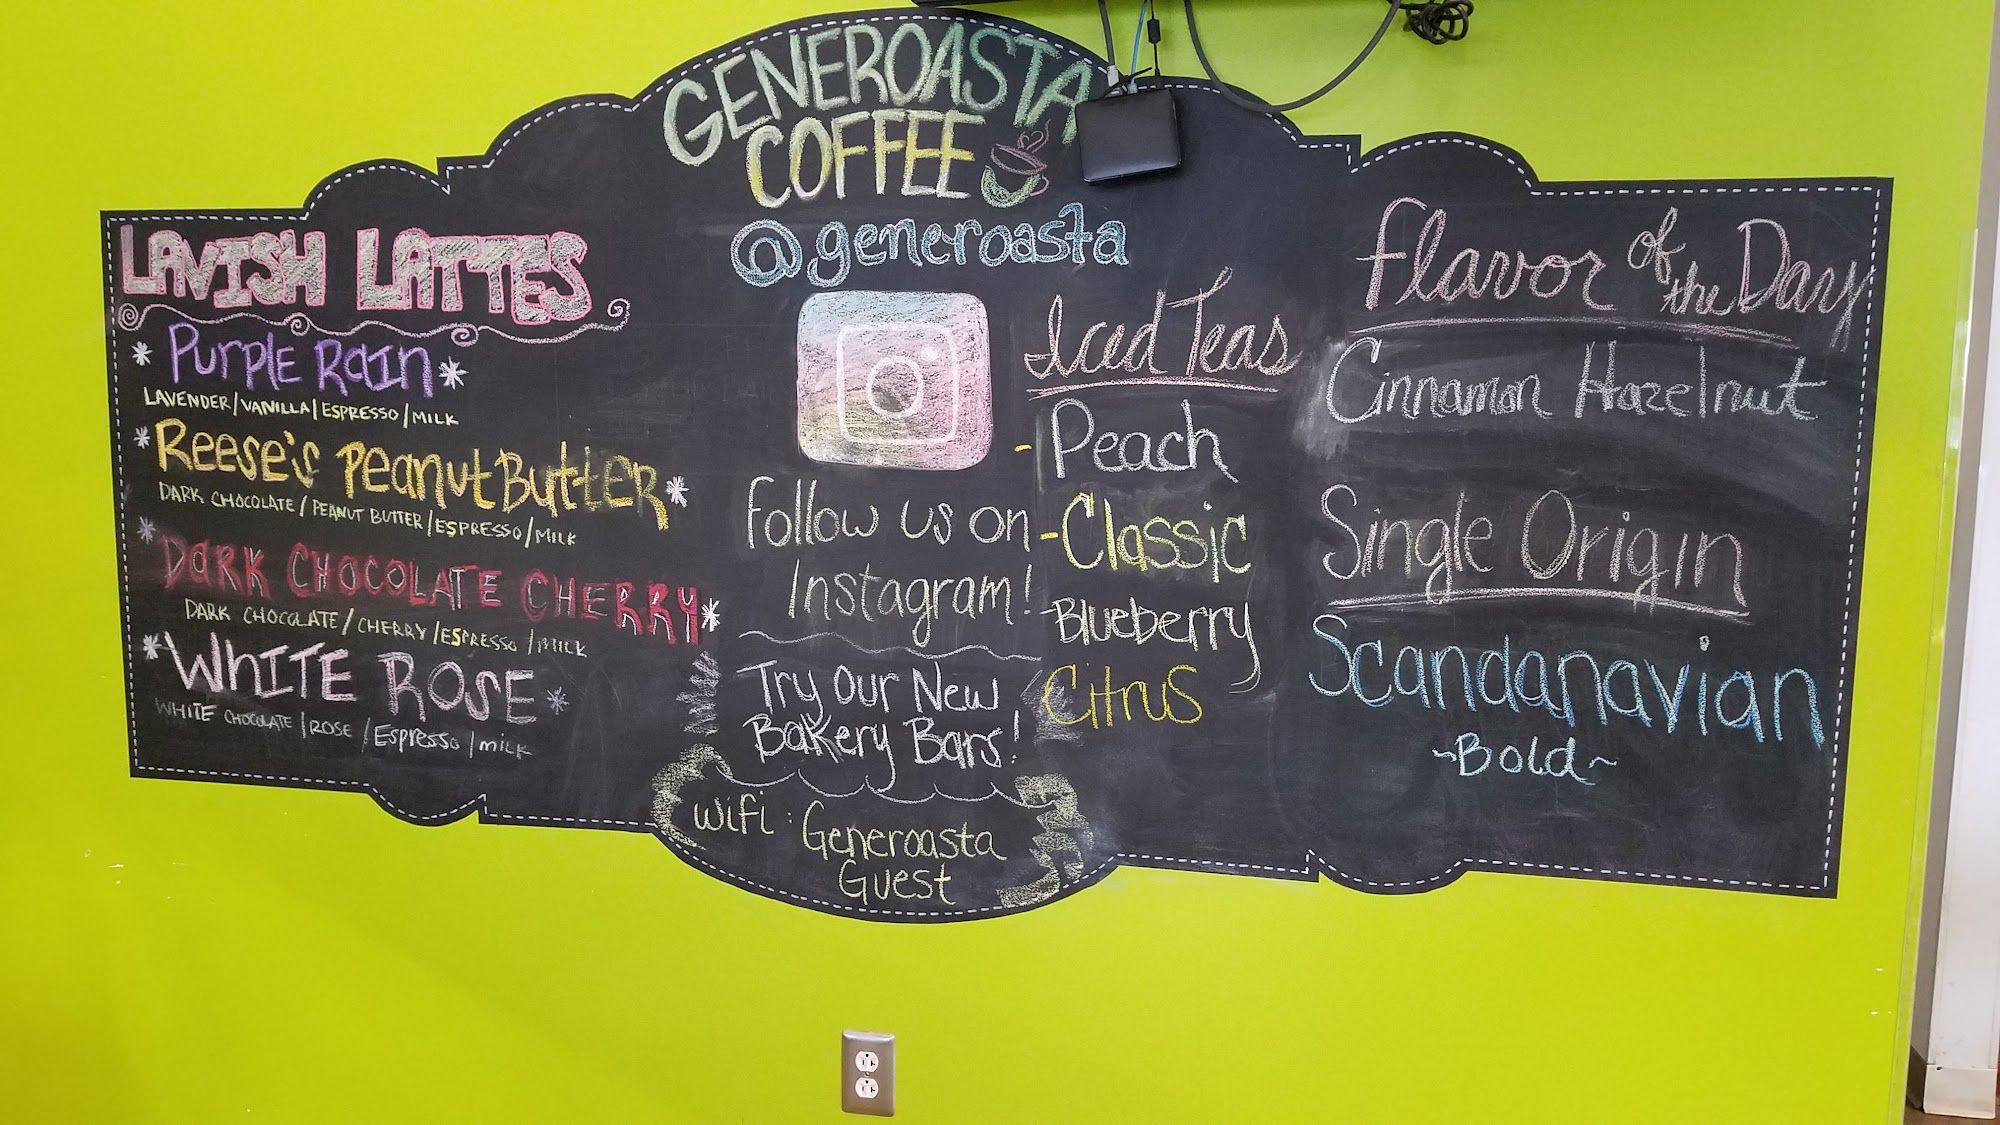 GENEROASTA
COFFEE
@generoasta
LAVISH LATTES
PURPLE RAIN
LAVENDER/VANILLA/ESPRESSO/MILK
REESE'S PEANUT BUTTER
DARK CHOCOLATE/PEANUT BUTTER/ESPRESSO/MILK
DARK CHOCOLATE CHERRY
DARK CHOCOLATE/CHERRY/ESPRESSO/MILK
WHITE ROSE
WHITE CHOCOLATE/ROSE/ESPRESSO/MILK
Follow us on
Instagram!
Try Our New
Bakery Bars!
Wifi: Generoasta
Guest
Iced Teas
-Peach
-Classic
-Blueberry
Citrus
Flavor of the Day
Cinnamon Hazelnut
Single Origin
Scandanavian
~Bold~